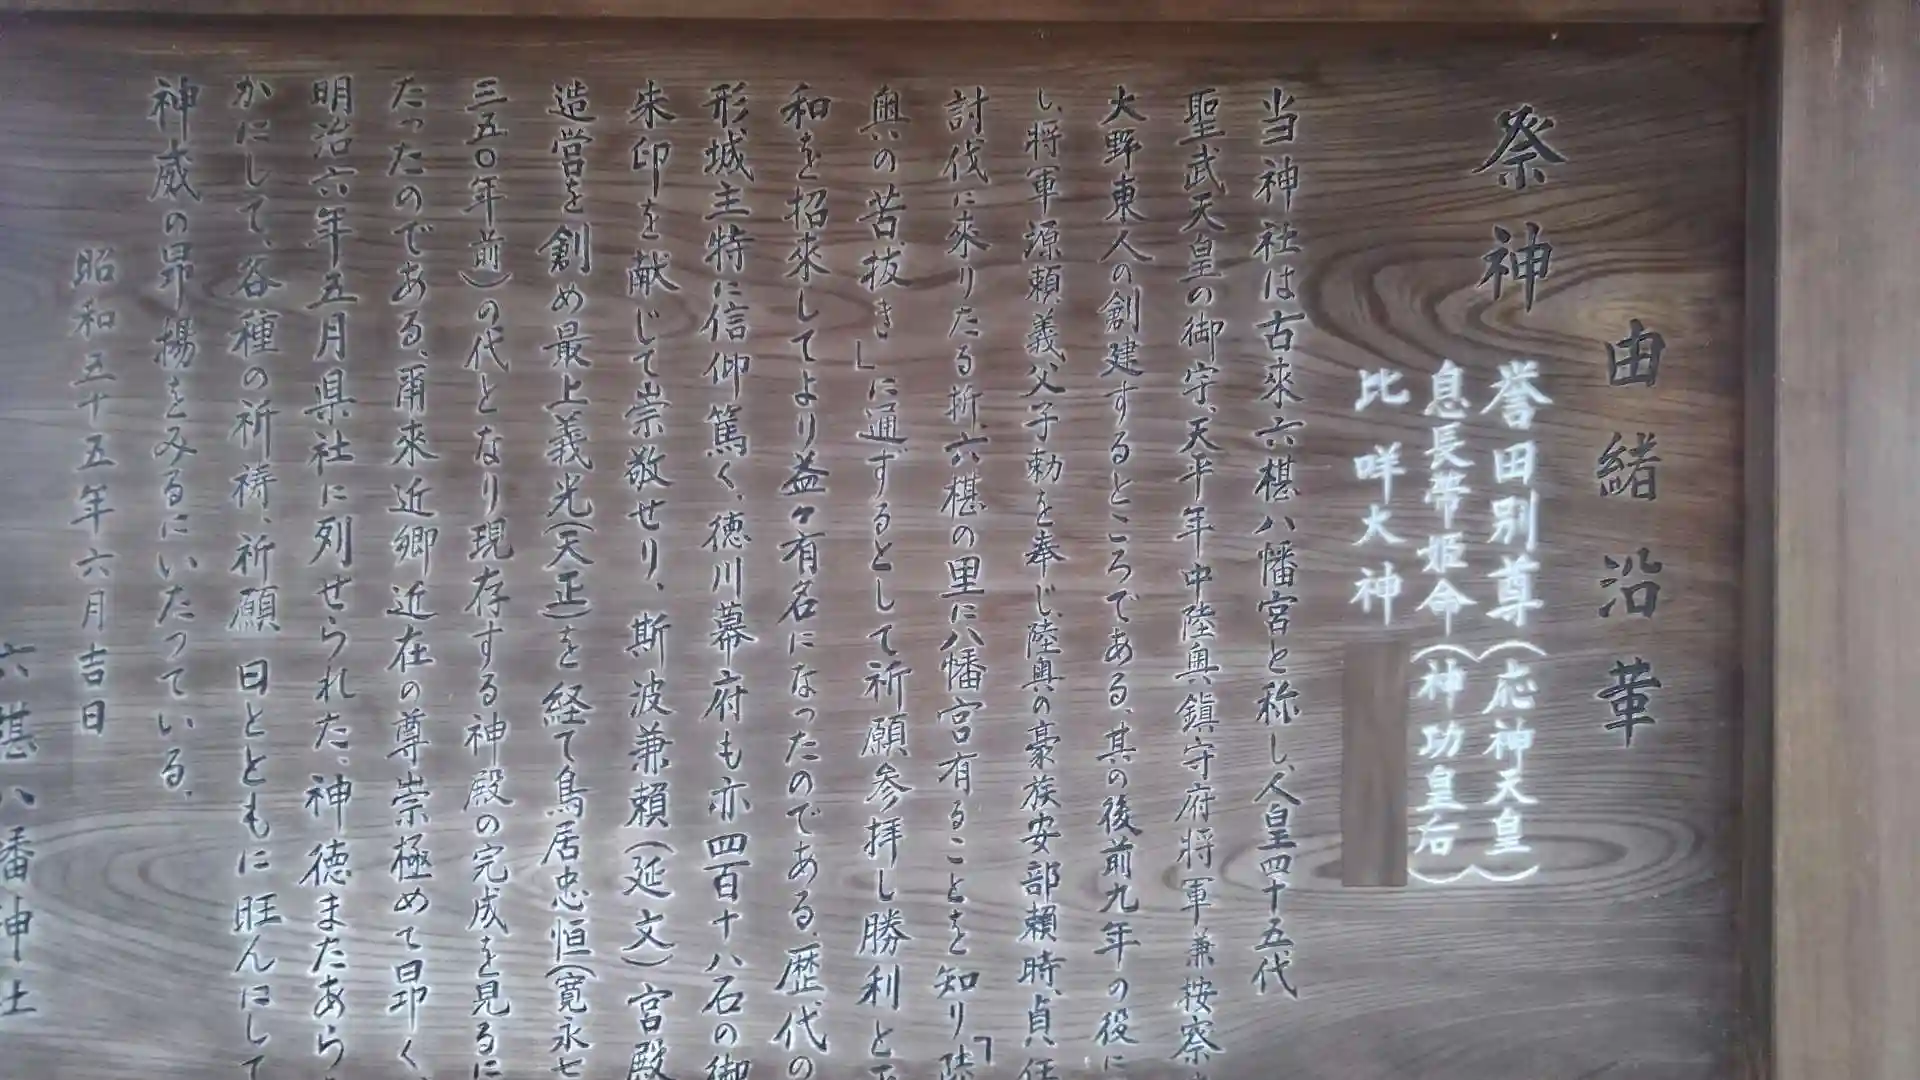 由緒沿革
祭神
誉田別尊(応神天皇)
息長帯姫命(神功皇后)
比咩大神
当神社は古来六椹八幡宮と称し、人皇四十五代
聖武天皇の御宇、天平年中陸奥鎮守府将軍兼按察
大野東人の創建するところである、其の後前九年の役に
し、将軍源頼義父子勅を奉じ、陸奥の豪族安部頼時、貞任
討伐に来りたる折、六椹の里に八幡宮有ることを知り「陸
奥の苦抜き」に通ずるとして祈願参拝し勝利と
和を招来してより益々有名になったのである、歴代の
形城主特に信仰篤く、徳川幕府も亦四百十八石の御
朱印を献じて崇敬せり、斯波兼頼(延文)宮殿
造営を創め最上義光(天正)を経て鳥居忠恒(寛永七
三五〇年前)の代となり現存する神殿の完成を見るに
たったのである、爾来近郷近在の尊崇極めて昂く、
明治六年五月県社に列せられた、神徳またあら
かにして、各種の祈祷、祈願日とともに旺んにして
神威の昻揚をみるにいたっている、
昭和五十五年六月吉日
六椹八幡神社